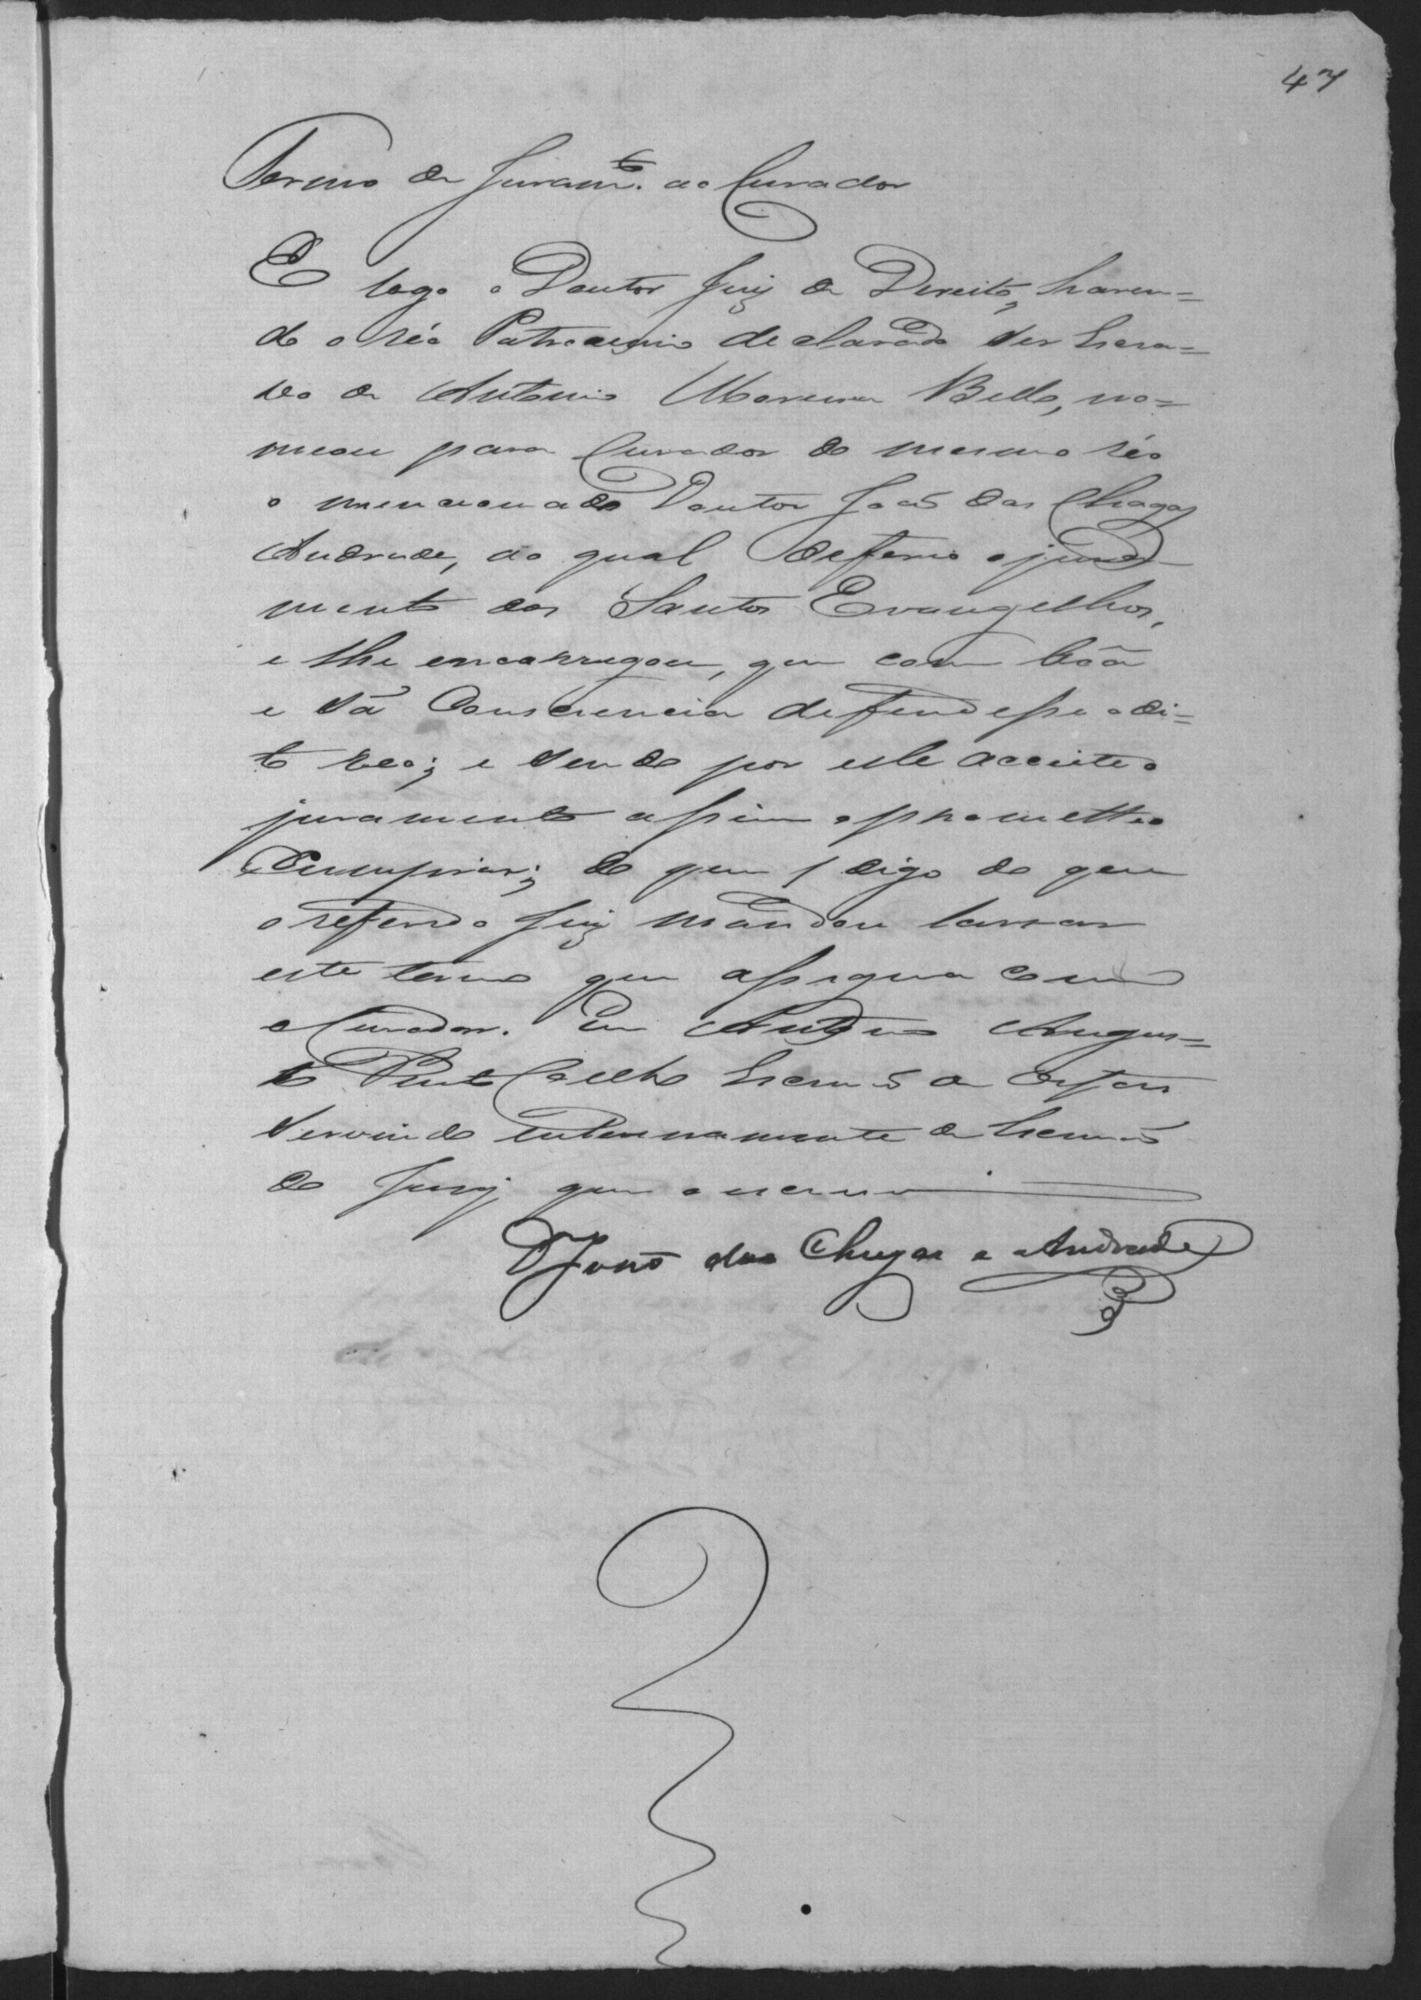 47
Termo de Juram.to ao Curador
E logo o Doutor Juiz de Direito, haven=
do o réo Patrocinio declarado ser Escra=
vo de Antonio Moreira Bello, no=
meou para Curador do mesmo réo
o mencionado Doutor João das Chagas
Andrade, ao qual deferio o jura-
mento dos Santos Evangelhos,
e lhe encarregou, que com bôa
e sã Consciencia defendesse o di=
to reo; e sendo por elle acceito o
juramento assim o prometteo
Cumprir; do que / digo do que
o referido Juiz mandou lavrar
este termo que assigna com
o Curador. Eu Augus=
to Pinto Coelho Escrivão de Orfãos
servindo interinamente de Escrivão
do Jury que o escrevi
Dr João das Chagas e Andrade